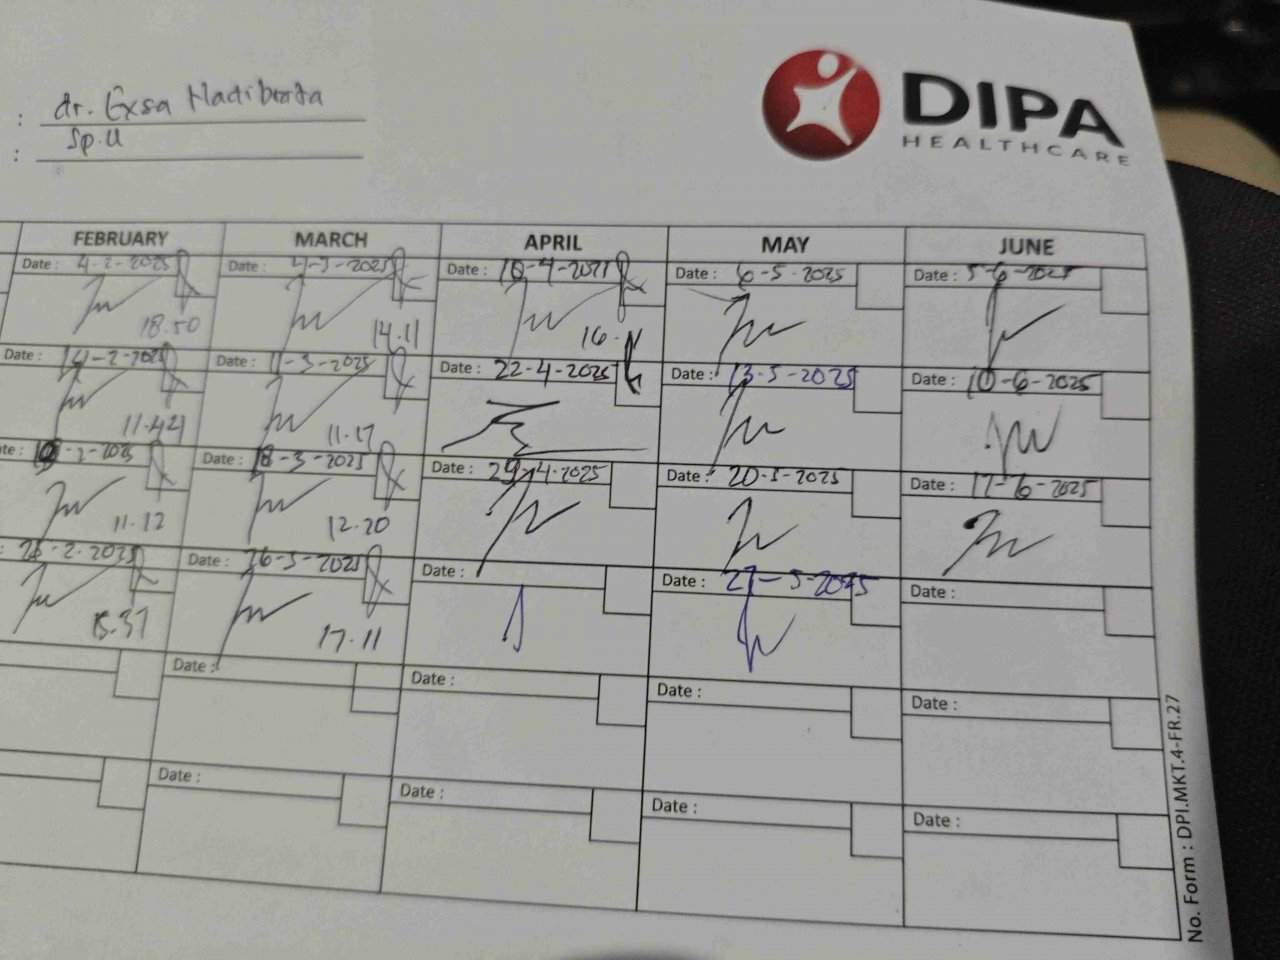 : dr. Exsa Hadibrata
: Sp.U
DIPA
HEALTHCARE
FEBRUARY MARCH APRIL MAY JUNE
Date : 4-2-2025 Date : 4-3-2025 Date : Date : 6-5-2025 Date : 5-6-2025
18.50 14.11 16.
Date : 14-2-2025 Date : 11-3-2025 Date : 22-4-2025 Date : 13-5-2025 Date : 10-6-2025
11.42 11.17
-2-2025 Date : 18-3-2025 Date : 29-4-2025 Date : 20-5-2025 Date : 17-6-2025
11.12 12.20
: 25-2-2025 Date : 26-3-2025 Date : Date : 27-5-2025 Date :
15.37 17.11
Date : Date : Date : Date :
Date : Date : Date : Date :
No. Form : DPI.MKT.4-FR.27